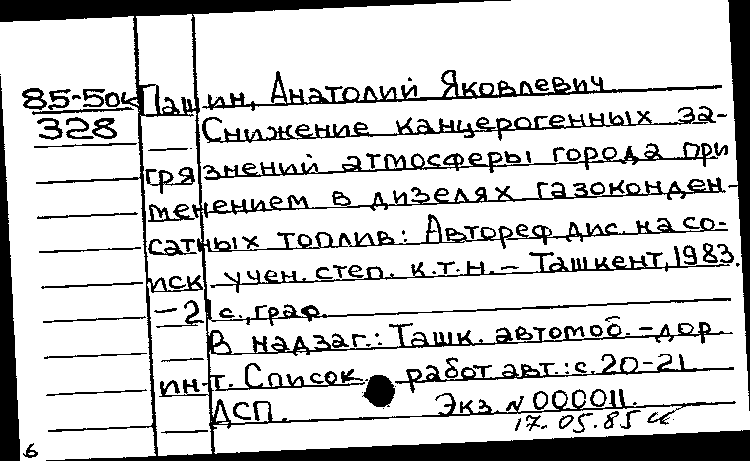 85-50к Пашин, Анатолий Яковлевич
328 Снижение канцерогенных за-
грязнений атмосферы города при
менением в дизелях газоконден-
сатных топлив: Автореф. дис. на со-
иск. учен. степ. к.т.н. – Ташкент, 1983.
– 21 с., граф.
В надзаг.: Ташк. автомоб.-дор.
ин-т. Список работ авт.: с. 20-21
ДСП. Экз. № 000011.
17.05.85
6